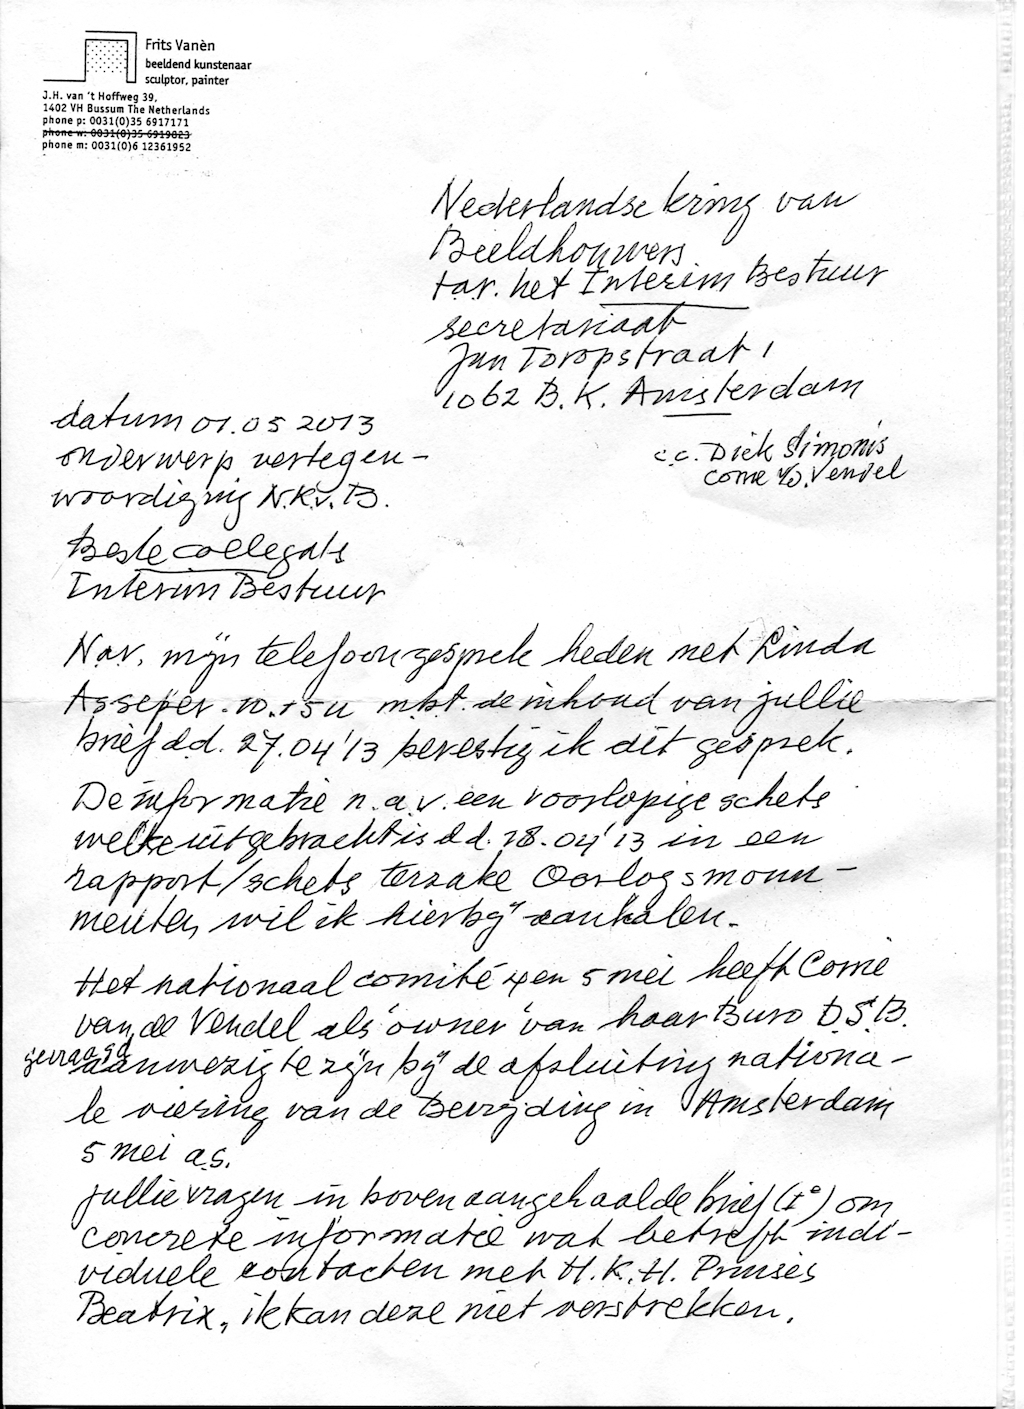 Frits Vanèn
beeldend kunstenaar
sculptor, painter
J.H. van 't Hoffweg 39,
1402 VH Bussum The Netherlands
phone p: 0031(0)35 6917171
phone w: 0031(0)35 6919823
phone m: 0031(0)6 12361952
Nederlandse kring van
Beeldhouwers
t.a.v. het Interim Bestuur
secretariaat
Jan Toropstraat 1
1062 B.K. Amsterdam
c.c. Dick Simonis
Corrie v/d. Vendel
datum 01.05 2013
onderwerp vertegen-
woordiging N.K.v.B.
Beste collega's
Interim Bestuur
N.a.v. mijn telefoongesprek heden met Linda
10.15u m.b.t. de inhoud van jullie
brief d.d. 27.04'13 bevestig ik dit gesprek.
De informatie n.a.v. een voorlopige schets
welke uitgebracht is d.d. 28.04'13 in een
rapport/schets terzake Oorlogsmonu-
menten, wil ik hierbij aanhalen.
Het nationaal comité 4 en 5 mei heeft Corrie
van de Vendel als 'owner' van haar Buro D.S.B.
gevraagd aanwezig te zijn bij de afsluiting nationa-
le viering van de Bevrijding in Amsterdam
5 mei a.s.
Jullie vragen in boven aangehaalde brief (1°) om
concrete informatie wat betreft indi-
viduele contacten met H.K.H. Prinses
Beatrix, ik kan deze niet verstrekken.